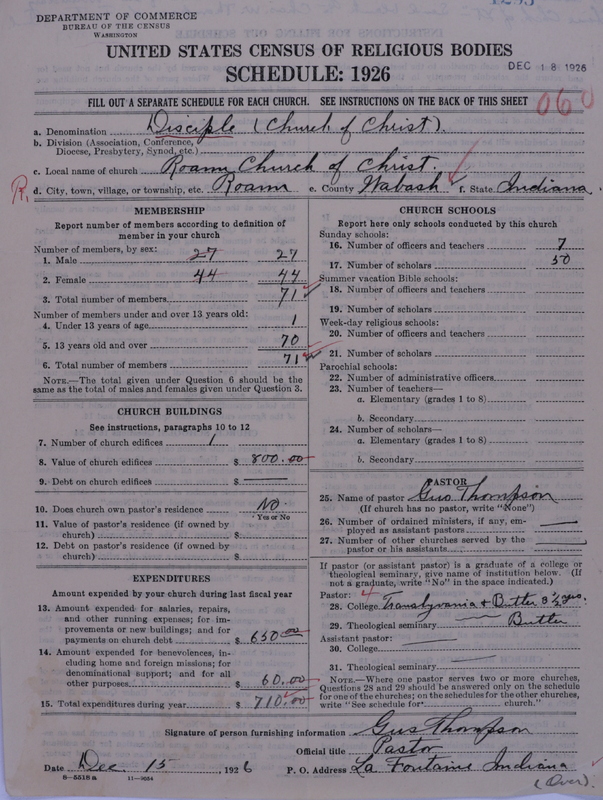 DEPARTMENT OF COMMERCE
BUREAU OF THE CENSUS
WASHINGTON
UNITED STATES CENSUS OF RELIGIOUS BODIES
SCHEDULE: 1926
DEC 18 1926
FILL OUT A SEPARATE SCHEDULE FOR EACH CHURCH. SEE INSTRUCTIONS ON THE BACK OF THIS SHEET
060
a. Denomination Disciple (Church of Christ).
b. Division (Association, Conference,
Diocese, Presbytery, Synod, etc.)
c. Local name of church Roann Church of Christ.
R. d. City, town, village, or township, etc. Roann e. County Wabash f. State Indiana.
MEMBERSHIP
Report number of members according to definition of
member in your church
Number of members, by sex:
1. Male 27 27
2. Female 44 44
3. Total number of members 71
Number of members under and over 13 years old:
4. Under 13 years of age 1
5. 13 years old and over 70
6. Total number of members 71
NOTE.—The total given under Question 6 should be the
same as the total of males and females given under Question 3.
CHURCH BUILDINGS
See instructions, paragraphs 10 to 12
7. Number of church edifices 1
8. Value of church edifices $ 800.00
9. Debt on church edifices $
10. Does church own pastor's residence No.
Yes or No
11. Value of pastor's residence (if owned by
church) $
12. Debt on pastor's residence (if owned by
church) $
EXPENDITURES
Amount expended by your church during last fiscal year
13. Amount expended for salaries, repairs,
and other running expenses; for im-
provements or new buildings; and for
payments on church debt $ 650.00
14. Amount expended for benevolences, in-
cluding home and foreign missions; for
denominational support; and for all
other purposes $ 60.00
15. Total expenditures during year $ 710.00
CHURCH SCHOOLS
Report here only schools conducted by this church
Sunday schools:
16. Number of officers and teachers 7
17. Number of scholars 50
Summer vacation Bible schools:
18. Number of officers and teachers
19. Number of scholars
Week-day religious schools:
20. Number of officers and teachers
21. Number of scholars
Parochial schools:
22. Number of administrative officers
23. Number of teachers—
a. Elementary (grades 1 to 8)
b. Secondary
24. Number of scholars—
a. Elementary (grades 1 to 8)
b. Secondary
PASTOR
25. Name of pastor Gus Thompson
(If church has no pastor, write "None")
26. Number of ordained ministers, if any, em-
ployed as assistant pastors
27. Number of other churches served by the
pastor or his assistants
If pastor (or assistant pastor) is a graduate of a college or
theological seminary, give name of institution below. (If
not a graduate, write "No" in the space indicated.)
Pastor: 4
28. College Transylvania & Butler 3½ yrs.
29. Theological seminary Butler
Assistant pastor:
30. College
31. Theological seminary
NOTE.—Where one pastor serves two or more churches,
Questions 28 and 29 should be answered only on the schedule
for one of the churches; on the schedules for the other churches,
write "See schedule for church."
Signature of person furnishing information Gus Thompson
Official title Pastor
Date Dec. 15, 1926 P. O. Address La Fontaine Indiana
8—5518a 11—9054
(Over).